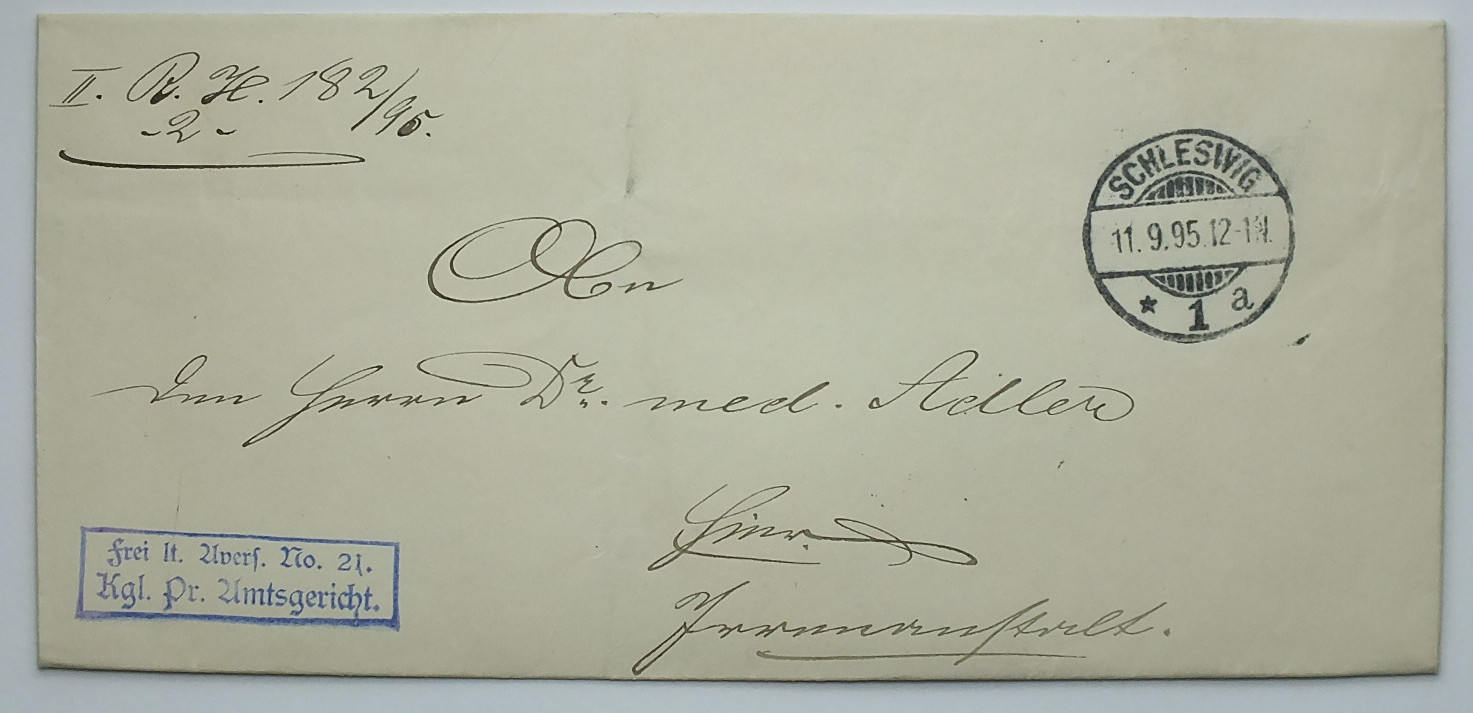 II. R. H. 182/95.
- 2 -
SCHLESWIG
11. 9. 95. 12-1 N.
* 1 a
An
den Herrn Dr. med. Adler
Hier.
Irrenanstalt.
Frei lt. Avers. No. 21.
Kgl. Pr. Amtsgericht.